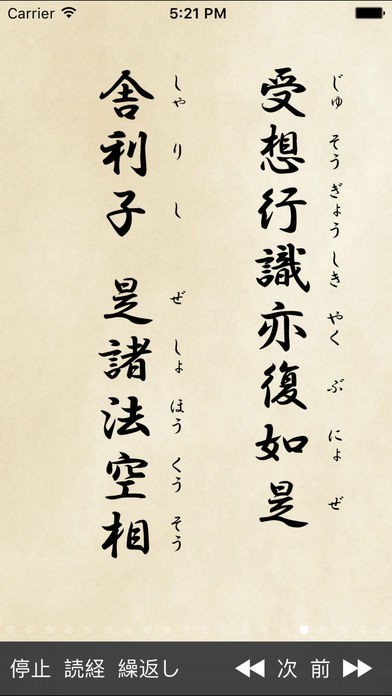 Carrier 5:21 PM
じゅ そう ぎょう しき やく ぶ にょ ぜ
受想行識亦復如是
しゃ り し ぜ しょ ほう くう そう
舎利子 是諸法空相
停止 読経 繰返し 次 前